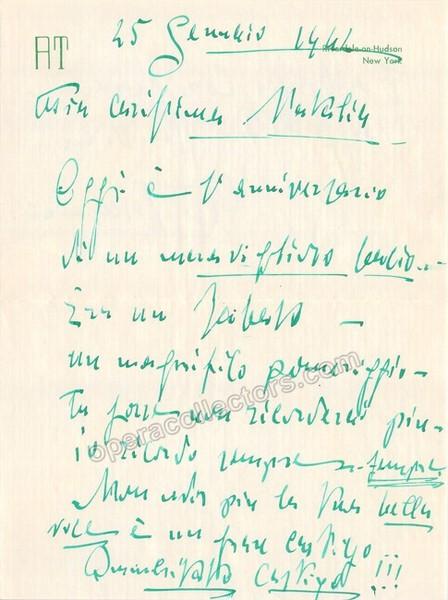 AT
25 Gennaio 1941
Riverdale-on-Hudson
New York
Mia carissima Natalia
Oggi è l'anniversario
di un meraviglioso bacio...
Era un Sabato —
un magnifico pomeriggio —
Tu forse non ricorderai più —
io ricordo sempre — sempre
Non udir più la tua bella
voce è un gran castigo...
Quasi castigo!!!
operacollectors.com